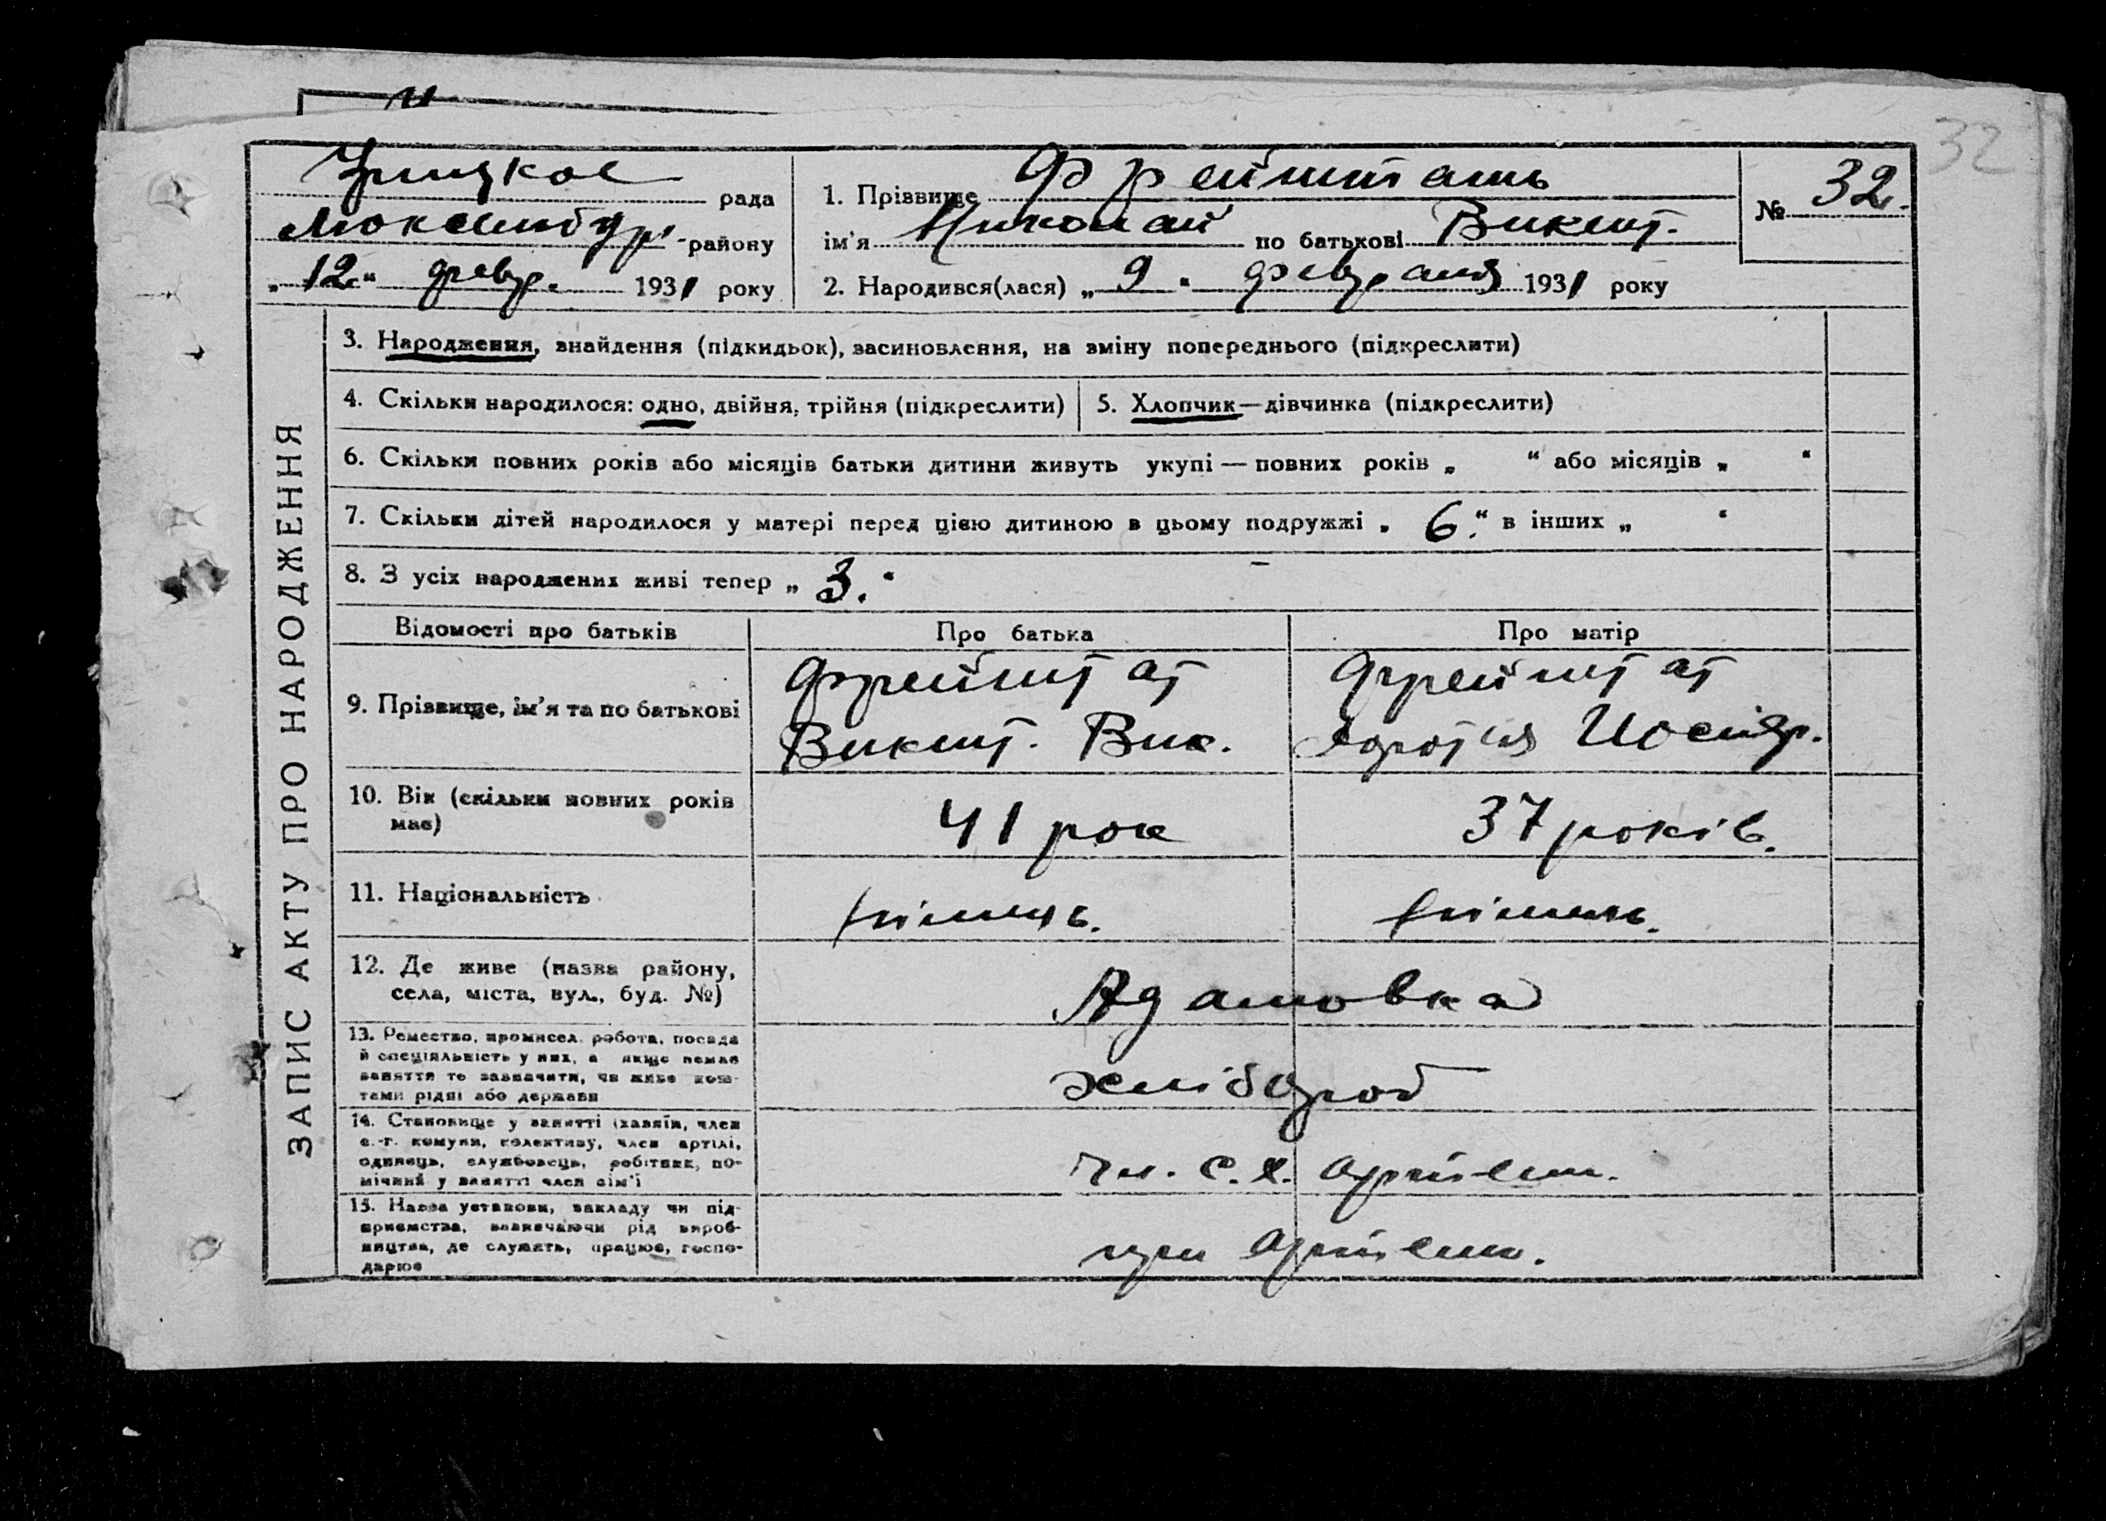 32
Урицкое рада
Люксембург. району
„12“ февр. 1931 року
1. Прізвище Фрейштать
ім'я Николай по батькові Викент.
№ 32.
2. Народився(лася) „9“ февраля 1931 року
ЗАПИС АКТУ ПРО НАРОДЖЕННЯ
3. Народження, знайдення (підкидьок), засиновлення, на зміну попереднього (підкреслити)
4. Скільки народилося: одно, двійня, трійня (підкреслити)
5. Хлопчик—дівчинка (підкреслити)
6. Скільки повних років або місяців батьки дитини живуть укупі — повних років „ “ або місяців „ “
7. Скільки дітей народилося у матері перед цією дитиною в цьому подружжі „6.“ в інших „ “
8. З усіх народжених живі тепер „3.“
Відомості про батьків
Про батька
Про матір
9. Прізвище, ім'я та по батькові
Фрейштат
Викент. Вик.
Фрейштат
Доротія Иосиф.
10. Вік (скільки повних років
має)
41 рок
37 років.
11. Національність
німець.
німець.
12. Де живе (назва району,
села, міста, вул., буд. №)
Адамовка
13. Ремество, промисел. робота, посада
й спеціяльність у них, а якщо немає
заняття то зазначити, чи живе кош-
тами рідні або держави
хлібороб
14. Становище у занятті (хазяїн, член
с.-г. комуни, колективу, член артілі,
одинець, службовець, робітник, по-
мічний у занятті член сім'ї
чл. С.х. артіели.
15. Назва установи, закладу чи під-
приємства, зазначаючи рід вироб-
ництва, де служить, працює, госпо-
дарює
при артіели.